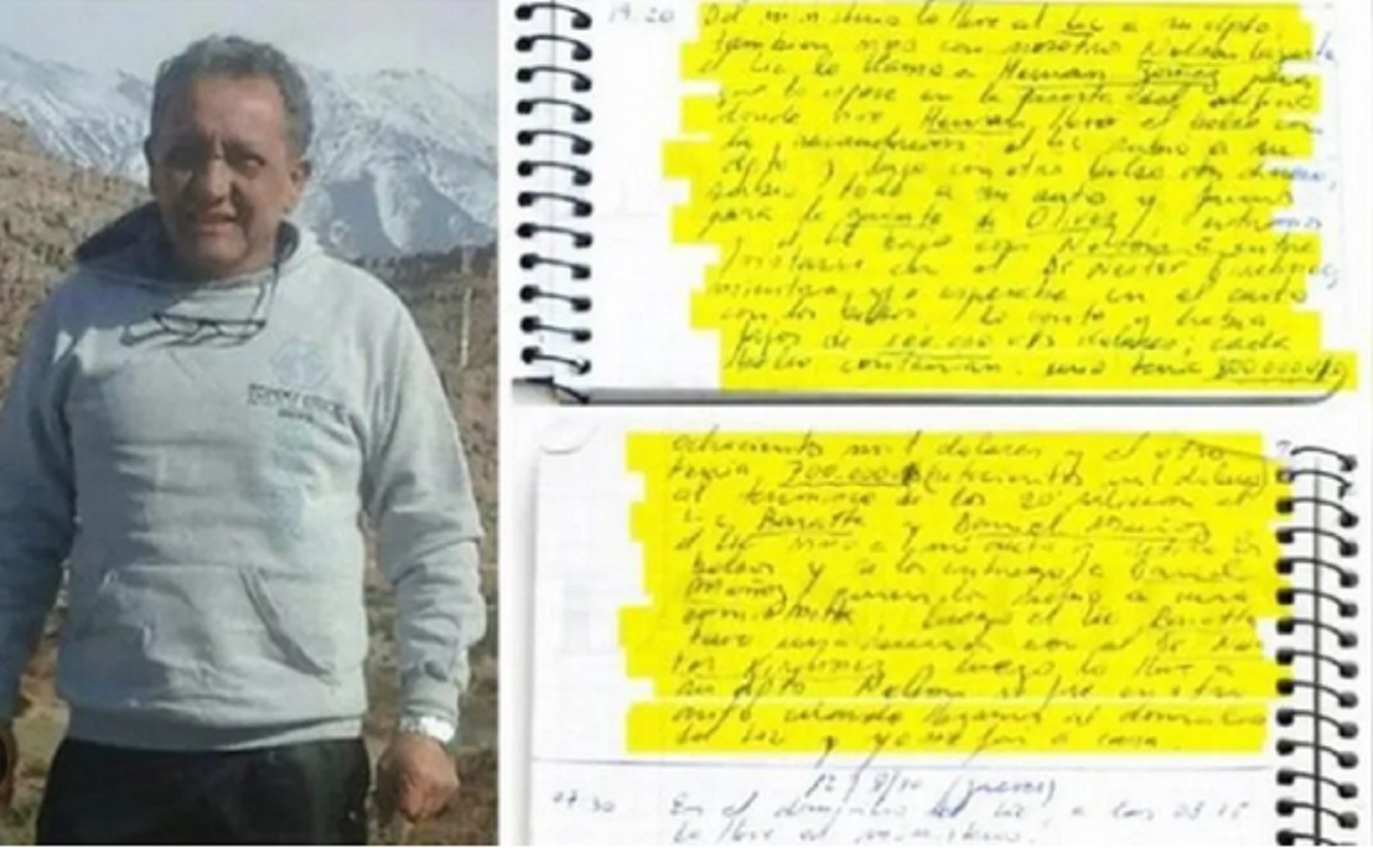 19:20 Del ministerio lo lleve al Lic a su dpto.
tambien vino con nosotro Nelson
el Lic lo llamo a Hernan Gomez para
que lo espere en la puerta del edificio
donde vive Hernan llevo el bolso con
la recaudacion. el Lic subio a su
dpto y bajo con otro bolso con dinero,
subio todo a mi auto y fuimos
para la quinta de Olivos,
y el Lic bajo con Nelson a entre
vistarse con el Dr Nestor
mientra yo esperaba en el auto
con los bolsos, lo conte y habia
fajos de 100.000 dolares; cada
bolso contenian. uno tenia 800.000
ochocientos mil dolares y el otro
tenia 700.000$ (setecientos mil dolares)
al termino de los 20 salieron el
Lic Baratta y Daniel Muñoz
el Lic vino a mi auto y retiro los
bolsos y se los entrego a Daniel
Muñoz, quien lo bajo a una
camionetta, luego el Lic Baratta
tuvo una reunion con el Dr
Kirchner, luego lo lleve a
su dpto. Nelson se fue en otro
auto, cuando llegamos al domicilio
del Lic y yo me fui a casa.
12/8/10 (jueves)
07:30 En el domicilio del Lic, a las 08:15
lo lleve al ministerio.